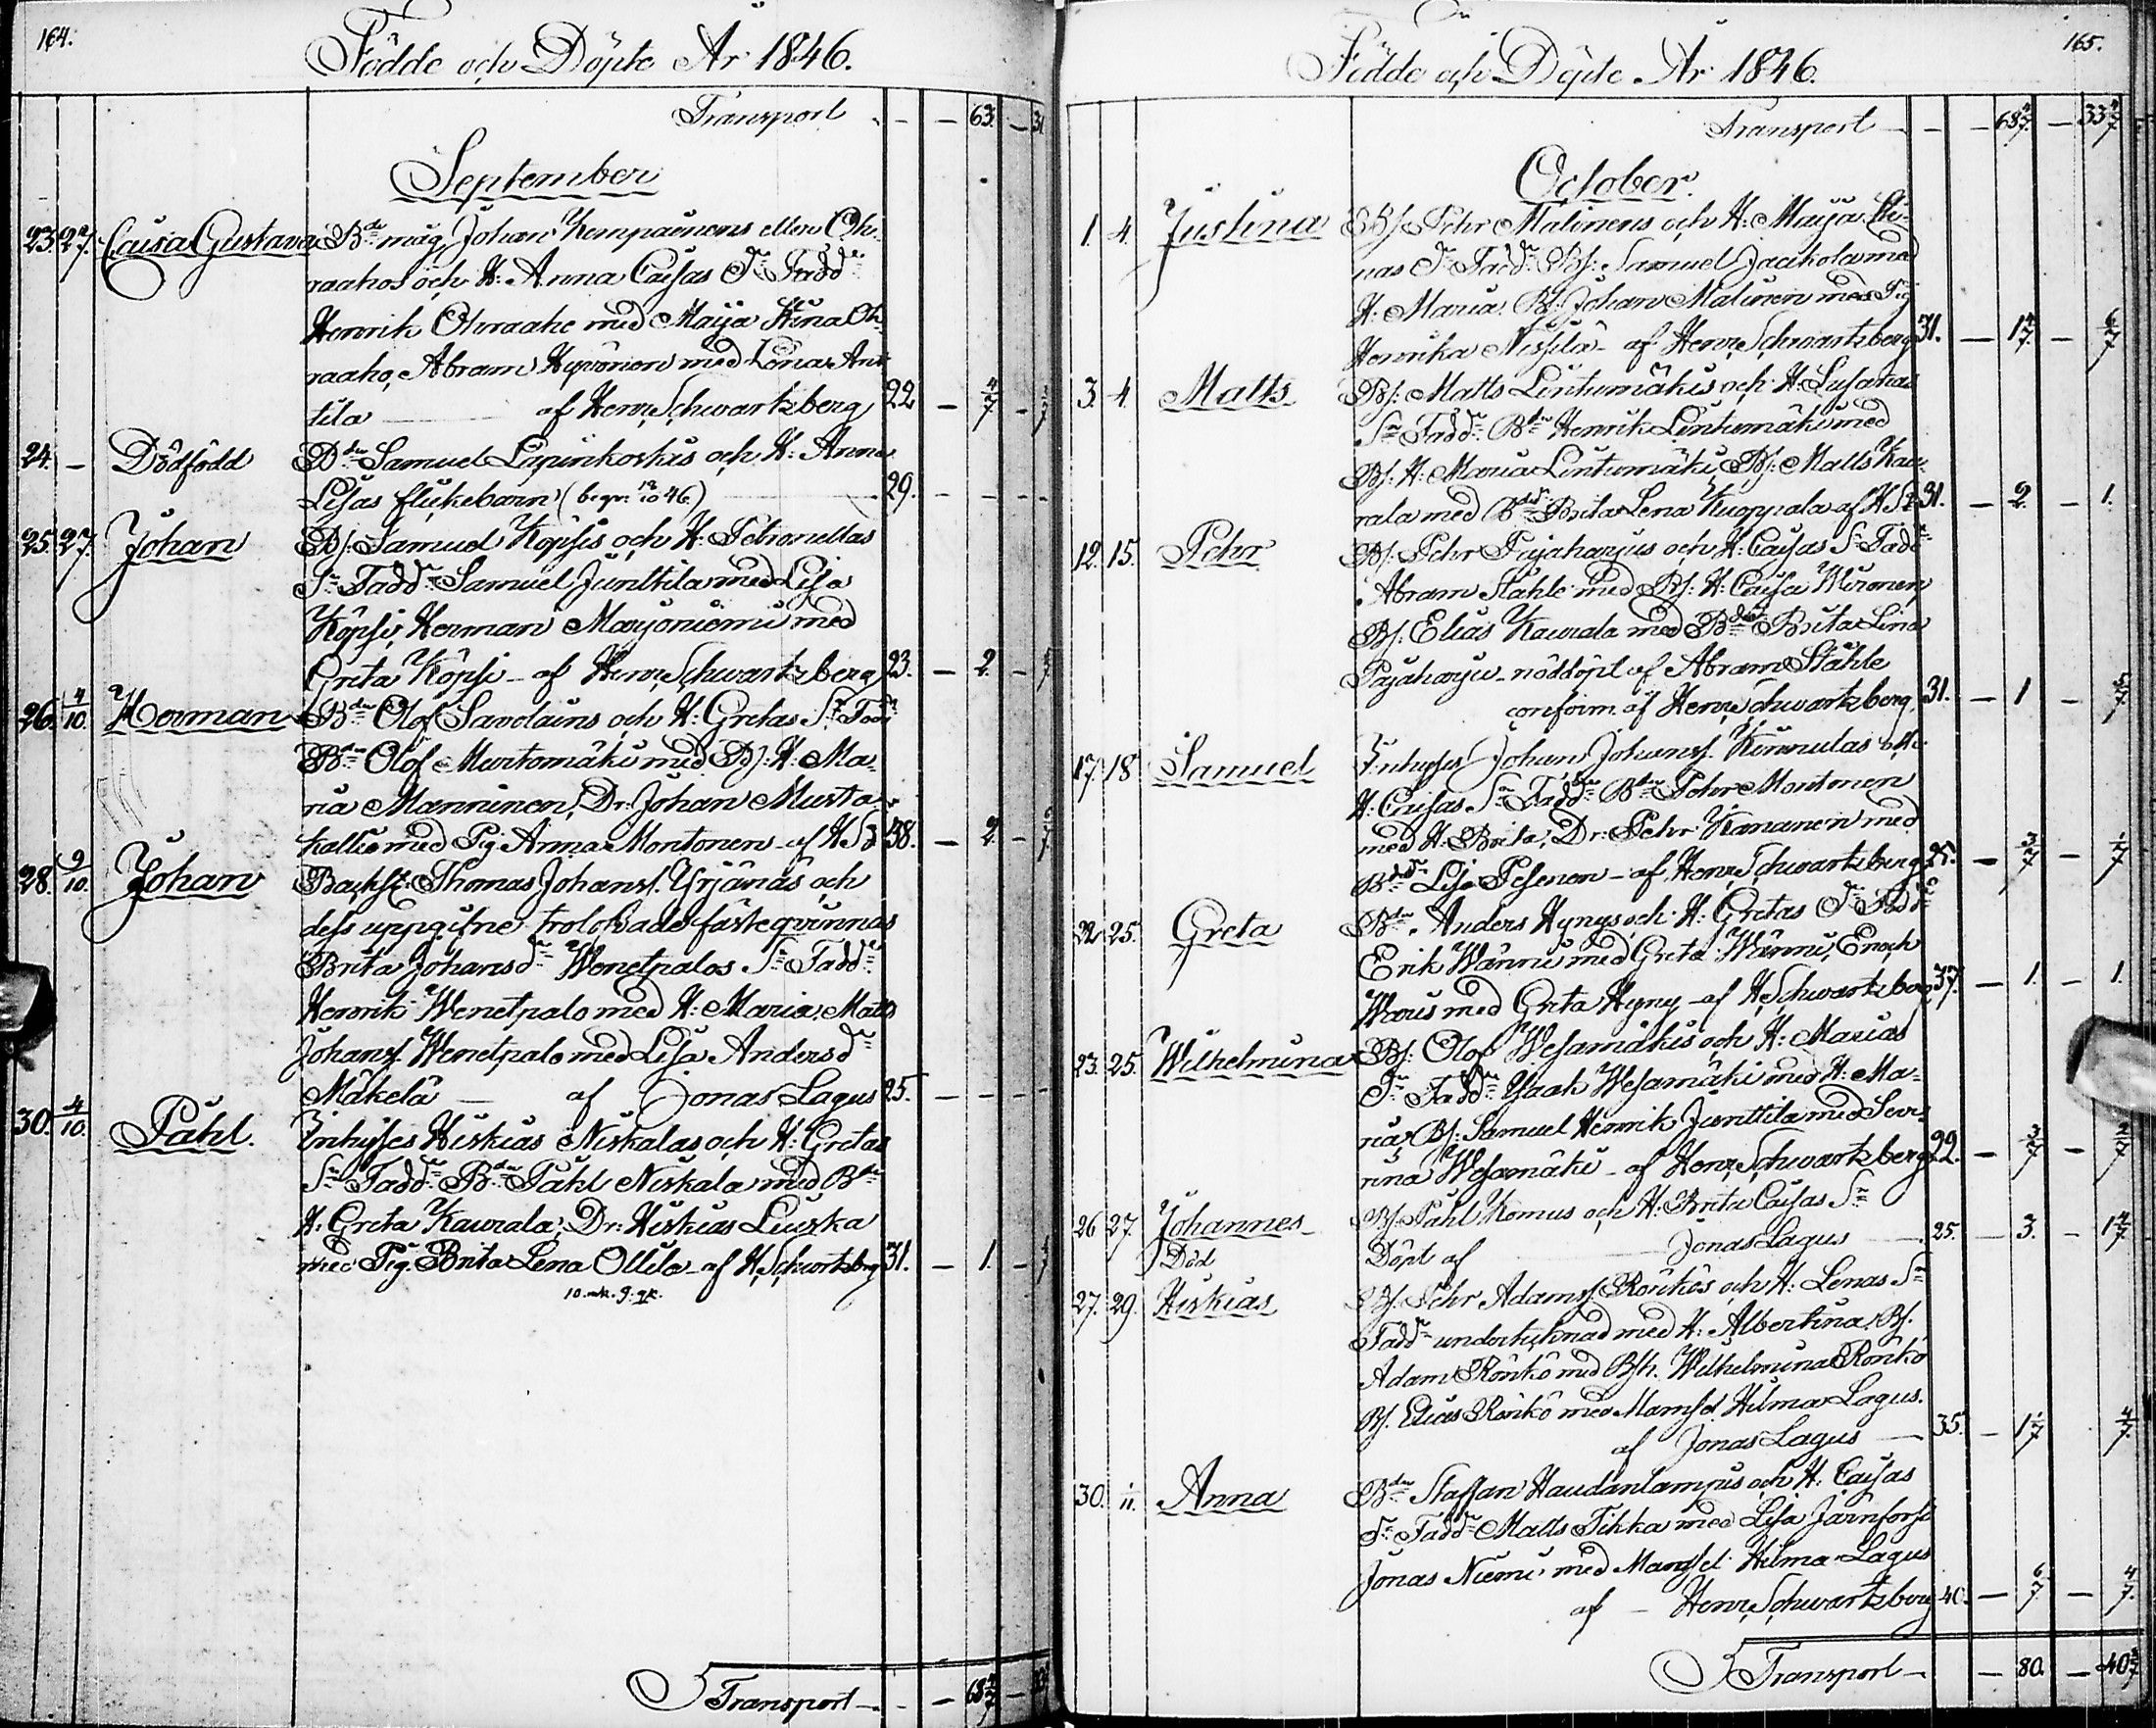 164.
Födde och Döpte År 1846.
Transport - - 63. - 31
September
23. 27. Caisa Gustava Bde måg Johan Kempainens eller Oh-
raahos och H: Anna Caisas Dr Fadd:
Henrik Ohraaho med Maija Stina Oh-
raaho, Abram Hyvönen med Lena Ant
tila af Henr. Schwartzberg 22 - 4/7 -
24. - Dödfödd Bdn Samuel Lapinkoskis och H: Anna
Lisas flickebarn (begr: 18/10 46.) 29. - - -
25. 27. Johan Bs: Samuel Köpsis och H: Petronellas
Sn Fadd: Samuel Junttila med Lisa
Köpsi, Herman Marjoniemi med
Greta Köpsi - af Henr. Schwartzberg 23. - 2. -
26. 4/10. Herman Bdn Olof Savolains och H: Gretas Sn Fadd
Bdn Olof Murtomäki med Bs: H: Ma-
ria Manninen, Dr: Johan Musta-
kallio med Pig. Anna Montonen - af H S 38. - 2. -
28. 9/10. Johan Backst: Thomas Johanss. Yrjänäs och
dess uppgifne trolofvade fästeqvinnas
Brita Johansdr Wenetpalos Sn Fadd:
Henrik Wenetpalo med H: Maria. Matts
Johanss. Wenetpalo med Lisa Andersdr
Mäkelä - af Jonas Lagus 25. - - -
30. 4/10. Påhl. Inhyses Hiskias Niskalas och H: Gretas
Sn Fadd: Bdn Påhl Niskala med Bdn
H: Greta Kaurala; Dr: Hiskias Luiska
med Pig. Brita Lena Ollila - af H. Schwartzberg 31. - 1. -
10. mk. 9. qk.
Transport - - - 68 4/7 -
165.
Födde och Döpte År 1846.
Transport - - 68 4/7 - 33 4/7
October.
1. 4. Justina Bs: Pehr Malinens och H: Maija Sti-
nas Dr Fadd: Bs: Samuel Jaakola med
H: Maria. Bs: Johan Malinen med Pig
Henrika Nissilä - af Henr. Schwartzberg 31. - 1 4/7 - 6/7
3. 4. Matts Bs: Matts Lintumäkis och H: Susanas
Sn Fadd: Bdn Henrik Lintumäki med
Bs: H: Maria Lintumäki, Bs: Matts Kau-
rala med Bdr Brita Lena Kuoppala af H S 31. - 2. - 1.
12. 15. Pehr Bs: Pehr Pajaharjus och H: Caisas Sn Fadd:
Abram Ståhle med Bs: H: Caisa Wironen
Bs: Elias Kaurala med Bdr Brita Lina
Pajaharju - nöddöpt af Abram Ståhle
confirm. af Henr. Schwartzberg 31. - 1 - 5/7
17. 18. Samuel Inhyses Johan Johanss. Kinnulas och
H: Caisas Sn Fadd: Bdn Pehr Montonen
med H: Brita; Dr: Pehr Kananen med
Bdr Lisa Pesonen - af Henr. Schwartzberg 25. - 3/7 - 1/7
22. 25. Greta Bdn Anders Hynys och H: Gretas Dr Fadd
Erik Wänni med Greta Wänni, Enoch
Waris med Greta Hyny - af H. Schwartzberg 37. - 1. - 1.
23. 25. Wilhelmina Bs: Olof Wesamäkis och H: Marias
Dr Fadd: Isaak Wesamäki med H: Ma-
ria, Bs: Samuel Henrik Junttila med Seve-
rina Wesamäki - af Henr. Schwartzberg 22. - 3/7 - 2/7
26. 27. Johannes Bs: Påhl Komus och H: Brita Caisas Sn
Död Döpt af Jonas Lagus 25. - 3. - 1 4/7
27. 29. Hiskias Bs: Pehr Adamss. Rönkös och H: Lenas Sn
Fadd: undertecknad med H: Albertina, Bs.
Adam Rönkö med Bsh. Wilhelmina Rönkö
Bs. Elias Rönkö med Mamsel Hilma Lagus.
af Jonas Lagus 35. - 1 1/7 4/7
30. 1/11. Anna Bdn Staffan Haudanlampis och H: Caisas
Dr Fadd: Matts Tikka med Lisa Järnfors
Jonas Niemi med Mamsel Hilma Lagus
af - Henr. Schwartzberg 40. - 6/7 - 4/7.
Transport - - 80. - 40 2/7